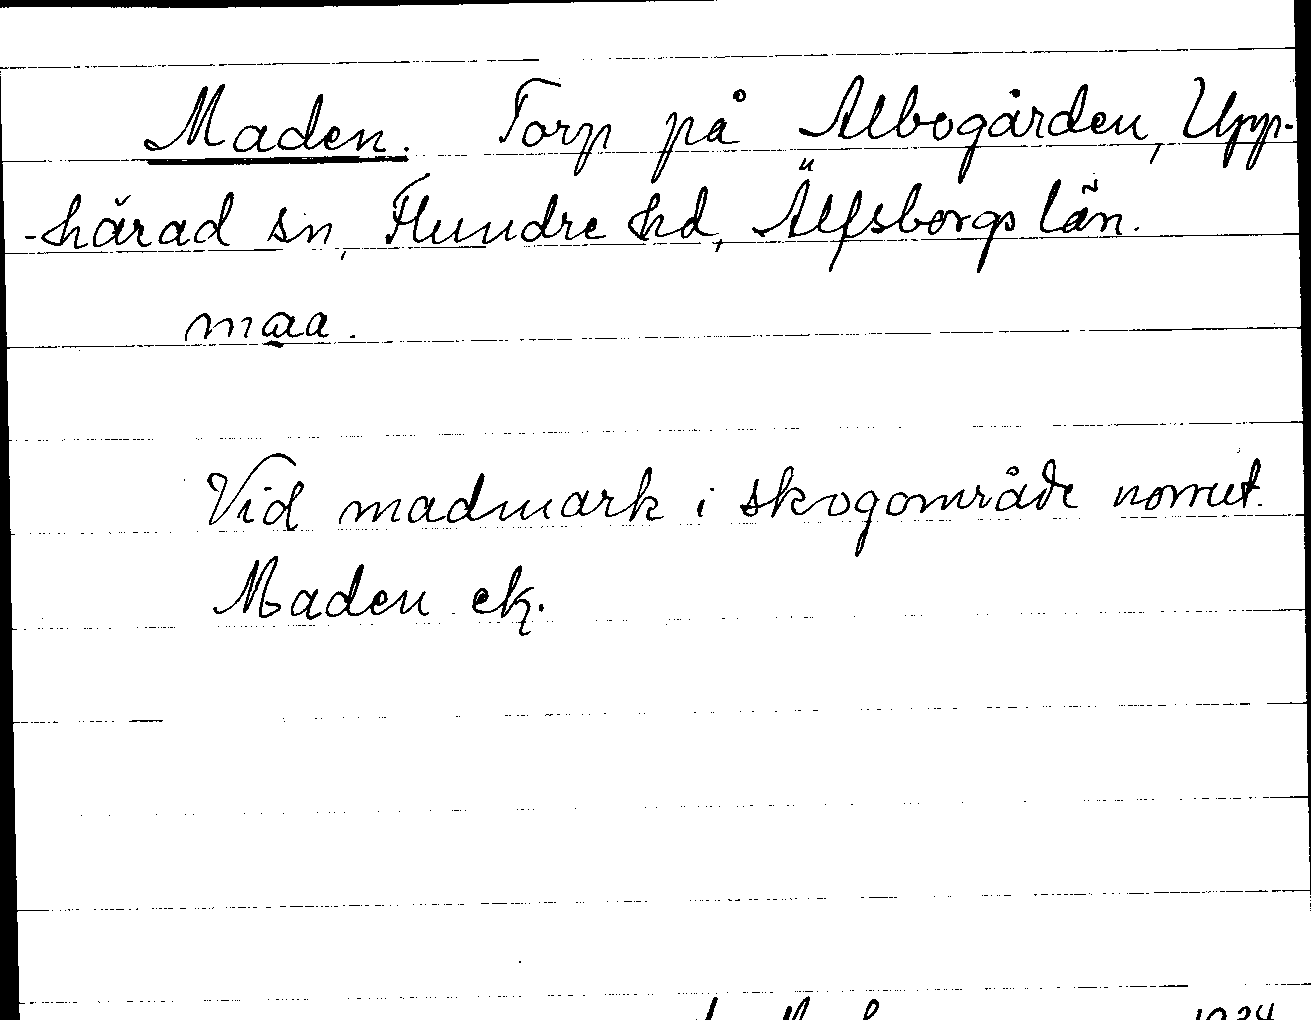 Maden. Torp på Albogården, Upp-
-härad sn, Flundre hd, Älfsborgs län.
maa.
Vid madmark i skogområde norrut.
Maden ek.
1934